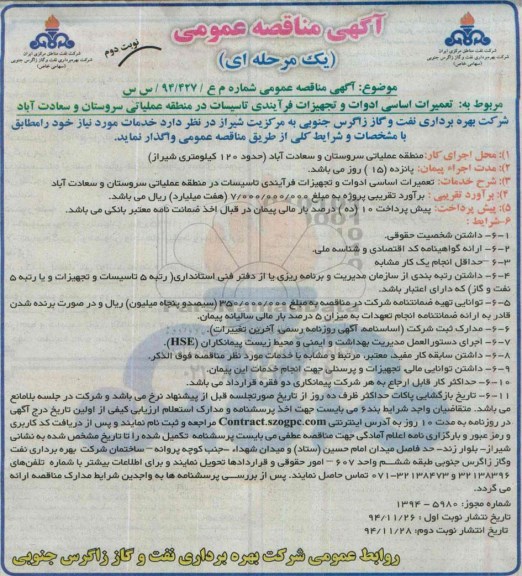 آگهی مناقصه عمومی
(یک مرحله ای)
نوبت دوم
شرکت نفت مناطق مرکزی ایران
شرکت بهره برداری نفت و گاز زاگرس جنوبی
(سهامی خاص)
شرکت نفت مناطق مرکزی ایران
شرکت بهره برداری نفت و گاز زاگرس جنوبی
(سهامی خاص)
موضوع: آگهی مناقصه عمومی شماره م ع / ۹۴/۴۲۷ / س س
مربوط به: تعمیرات اساسی ادوات و تجهیزات فرآیندی تاسیسات در منطقه عملیاتی سروستان و سعادت آباد
شرکت بهره برداری نفت و گاز زاگرس جنوبی به مرکزیت شیراز در نظر دارد خدمات مورد نیاز خود رامطابق
با مشخصات و شرایط کلی از طریق مناقصه عمومی واگذار نماید.
۱): محل اجرای کار: منطقه عملیاتی سروستان و سعادت آباد (حدود ۱۲۰ کیلومتری شیراز)
۲): مدت اجراء پیمان: پانزده (۱۵ ) روز می باشد.
۳): شرح خدمات: تعمیرات اساسی ادوات و تجهیزات فرآیندی تاسیسات در منطقه عملیاتی سروستان و سعادت آباد
۴): برآورد تقریبی : برآورد تقریبی پروژه به مبلغ ۷/۰۰۰/۰۰۰/۰۰۰ (هفت میلیارد) ریال می باشد.
۵): پیش پرداخت: پیش پرداخت ۱۰ (ده ) درصد بار مالی پیمان در قبال اخذ ضمانت نامه معتبر بانکی می باشد.
۶-شرایط :
۶-۱- داشتن شخصیت حقوقی.
۶-۲- ارائه گواهینامه کد اقتصادی و شناسه ملی.
۶-۳ -حداقل انجام یک کار مشابه
۶-۴- داشتن رتبه بندی از سازمان مدیریت و برنامه ریزی یا از دفتر فنی استانداری( رتبه ۵ تاسیسات و تجهیزات و یا رتبه ۵
نفت و گاز) که دارای اعتبار باشد.
۶-۵- توانایی تهیه ضمانتنامه شرکت در مناقصه به مبلغ ۳۵۰/۰۰۰/۰۰۰ (سیصدو پنجاه میلیون) ریال و در صورت برنده شدن
قادر به ارائه ضمانتنامه انجام تعهدات به میزان ۵ درصد بار مالی سالیانه پیمان.
۶-۶- مدارک ثبت شرکت (اساسنامه، آگهی روزنامه رسمی، آخرین تغییرات).
۶-۷- اجرای دستورالعمل مدیریت بهداشت و ایمنی و محیط زیست پیمانکاران (HSE).
۶-۸- داشتن سابقه کار مفید، معتبر، مرتبط و مشابه با خدمات مورد نظر مناقصه فوق الذکر.
۶-۹- داشتن توانایی مالی ، تجهیزات و پرسنلی جهت انجام خدمات این پیمان.
۶-۱۰- حداکثر کار قابل ارجاع به هر شرکت پیمانکاری دو فقره قرارداد می باشد.
۶-۱۱- تاریخ بازگشایی پاکات حداکثر ظرف ده روز از تاریخ صورتجلسه قبل از پیشنهاد نرخ می باشد و شرکت در جلسه بلامانع
می باشد. متقاضیان واجد شرایط بندا۶ می بایست جهت اخذ پرسشنامه و مدارک استعلام ارزیابی کیفی از اولین تاریخ درج آگهی
در روزنامه به مدت ۱۰ روز به آدرس اینترنتی Contract.szogpc.com مراجعه و ثبت نام نمایند و پس از دریافت کد کاربری
و رمز عبور و بارگزاری نامه اعلام آمادگی جهت مناقصه عطفی می بایست پرسشنامه تکمیل شده را تا تاریخ مشخص شده به نشانی
شیراز- بلوار زند- حد فاصل میدان امام حسین (ستاد) و میدان شهداء -جنب کوچه پروانه – ساختمان شرکت بهره برداری نفت
وگاز زاگرس جنوبی طبقه ششم واحد ۶۰۷ – امور حقوقی و قراردادها تحویل نمایند و برای اطلاعات بیشتر با شماره تلفن‌های
۳۲۱۳۸۳۹۶ و ۳۲۱۳۸۴۷۳-۰۷۱ تماس حاصل نمایند. پس از بررسی پرسشنامه ها به واجدین شرایط مدارک مناقصه ارائه
می گردد.
شماره مجوز: ۵۹۸۰ - ۱۳۹۴
تاریخ نتشار نوبت اول : ۹۴/۱۱/۲۶
تاریخ انتشار نوبت دوم: ۹۴/۱۱/۲۸
روابط عمومی شرکت بهره برداری نفت و گاز زاگرس جنوبی